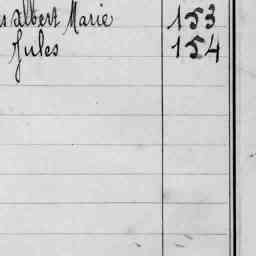 s Albert Marie 153
Jules 154